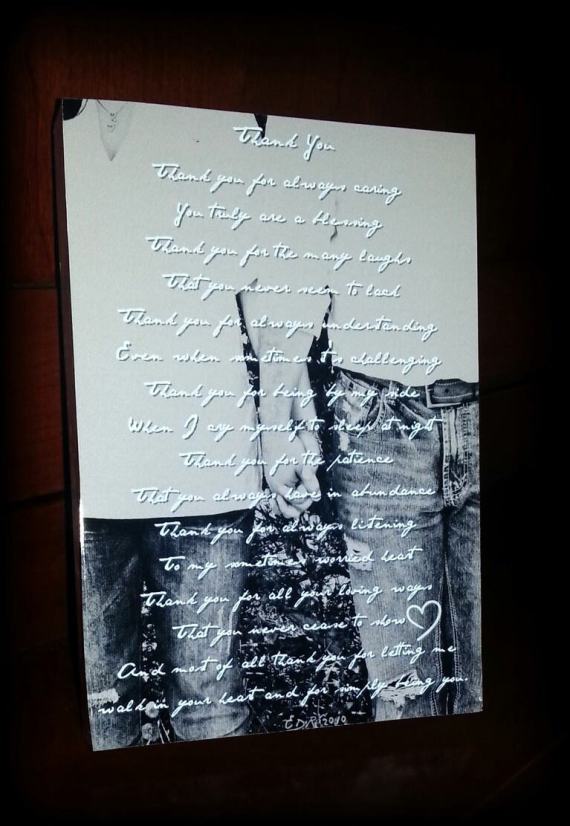 Thank You
Thank you for always caring
You truly are a blessing
Thank you for the many laughs
That you never seem to lack
Thank you for always understanding
Even when sometimes it's challenging
Thank you for being by my side
When I cry myself to sleep at night
Thank you for the patience
That you always have in abundance
Thank you for always listening
To my sometimes worried heart
Thank you for all your loving ways
That you never cease to show
And most of all thank you for letting me
walk in your heart and for simply being you.
EDR 2010